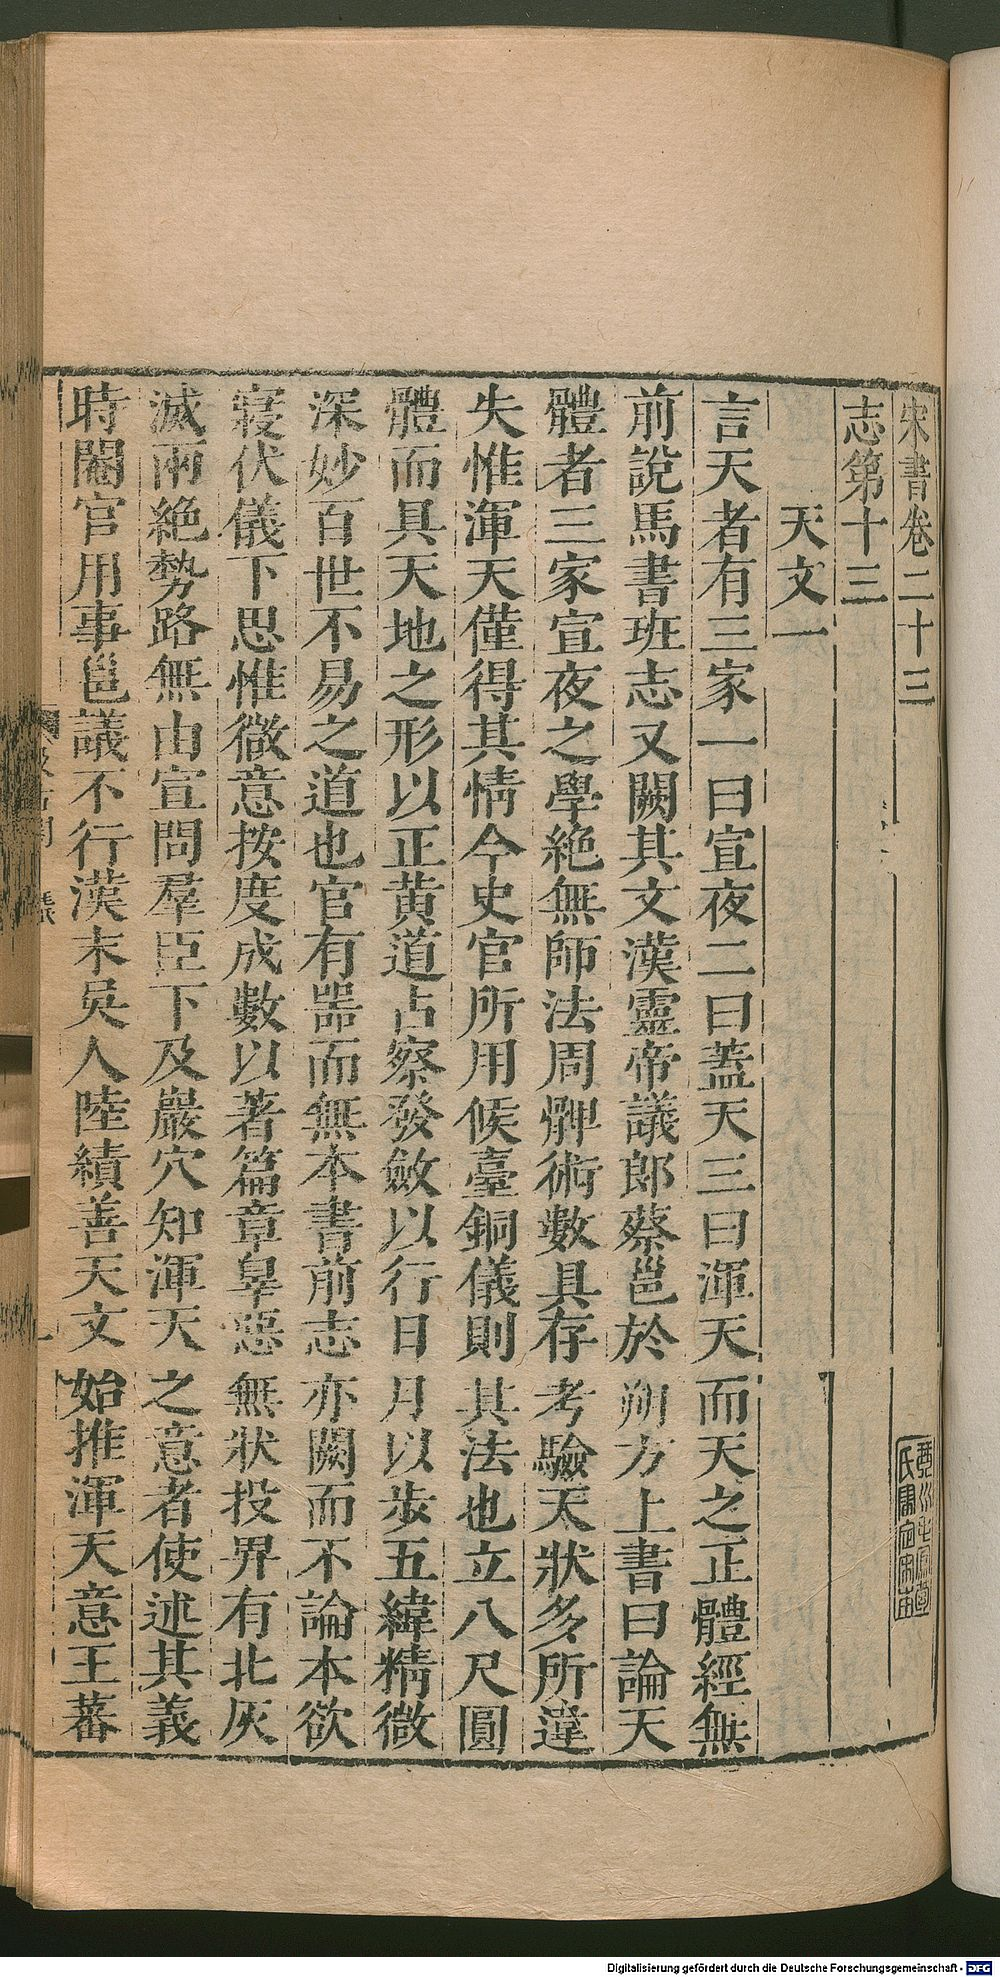 宋書卷二十三
志第十三
天文一
言天者有三家一曰宣夜二曰蓋天三曰渾天而天之正體經無
前說馬書班志又闕其文漢靈帝議郎蔡邕於朔方上書曰論天
體者三家宣夜之學絶無師法周髀術數具存考驗天狀多所違
失惟渾天僅得其情今史官所用候臺銅儀則其法也立八尺圓
體而具天地之形以正黄道占察發斂以行日月以步五緯精微
深妙百世不易之道也官有器而無本書前志亦闕而不論本欲
寢伏儀下思惟微意按度成數以著篇章辠惡無狀投畀有北灰
滅兩絶勢路無由宣問羣臣下及巖穴知渾天之意者使述其義
時閹官用事邕議不行漢末吳人陸績善天文始推渾天意王蕃
Digitalisierung gefördert durch die Deutsche Forschungsgemeinschaft - DFG